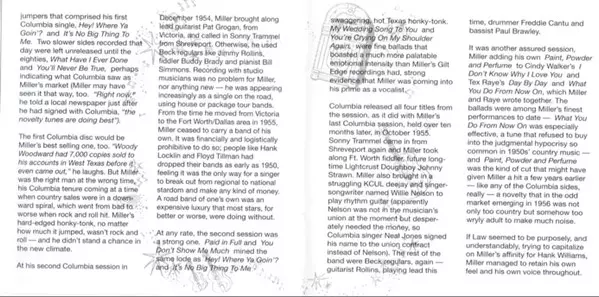 jumpers that comprised his first
Columbia single, Hey! Where Ya
Goin'? and It's No Big Thing To
Me. Two slower sides recorded that
day were left unreleased until the
eighties, What Have I Ever Done
and You'll Never Be True, perhaps
indicating what Columbia saw as
Miller's market (Miller may have
seen it that way, too. "Right now,"
he told a local newspaper just after
he had signed with Columbia, "the
novelty tunes are doing best").
The first Columbia disc would be
Miller's best selling one, too. "Woody
Woodward had 7,000 copies sold to
his accounts in West Texas before it
even came out," he laughs. But Miller
was the right man at the wrong time,
his Columbia tenure coming at a time
when country sales were in a down-
ward spiral, which went from bad to
worse when rock and roll hit. Miller's
hard-edged honky-tonk, no matter
how much it jumped, wasn't rock and
roll — and he didn't stand a chance in
the new climate.
At his second Columbia session in
December 1954, Miller brought along
lead guitarist Pat Grogan, from
Victoria, and called in Sonny Trammel
from Shreveport. Otherwise, he used
Beck regulars like Jimmy Rollins,
fiddler Buddy Brady and pianist Bill
Simmons. Recording with studio
musicians was no problem for Miller,
nor anything new — he was appearing
increasingly as a single on the road,
using house or package tour bands.
From the time he moved from Victoria
to the Fort Worth/Dallas area in 1955,
Miller ceased to carry a band of his
own. It was financially and logistically
prohibitive to do so; people like Hank
Locklin and Floyd Tillman had
dropped their bands as early as 1950,
feeling it was the only way for a singer
to break out from regional to national
stardom and make any kind of money.
A road band of one's own was an
expensive luxury that most stars, for
better or worse, were doing without.
At any rate, the second session was
a strong one. Paid in Full and You
Don't Show Me Much mined the
same lode as Hey! Where Ya Goin'?
and It's No Big Thing To Me
swaggering, hot Texas honky-tonk.
My Wedding Song To You and
You're Crying On My Shoulder
Again, were fine ballads that
boasted a much more palatable
emotional intensity than Miller's Gilt
Edge recordings had, strong
evidence that Miller was coming into
his prime as a vocalist.
Columbia released all four titles from
the session, as it did with Miller's
last Columbia session, held over ten
months later, in October 1955.
Sonny Trammel came in from
Shreveport again and Miller took
along Ft. Worth fiddler, future long-
time Lightcrust Doughboy Johnny
Strawn. Miller also brought in a
struggling KCUL deejay and singer-
songwriter named Willie Nelson to
play rhythm guitar (apparently
Nelson was not in the musician's
union at the moment but desper-
ately needed the money, so
Columbia singer Neal Jones signed
his name to the union contract
instead of Nelson). The rest of the
band were Beck regulars, again —
guitarist Rollins, playing lead this
time, drummer Freddie Cantu and
bassist Paul Brawley.
It was another assured session,
Miller adding his own Paint, Powder
and Perfume to Cindy Walker's I
Don't Know Why I Love You and
Tex Raye's Day By Day and What
You Do From Now On, which Miller
and Raye wrote together. The
ballads were among Miller's finest
performances to date — What You
Do From Now On was especially
effective, a tune that refused to buy
into the judgmental hypocrisy so
common in 1950s' country music —
and Paint, Powder and Perfume
was the kind of cut that might have
given Miller a hit a few years earlier
— like any of the Columbia sides,
really — a novelty that in the odd
market emerging in 1956 was not
only too country but somehow too
wryly adult to make much noise.
If Law seemed to be purposely, and
understandably, trying to capitalize
on Miller's affinity for Hank Williams,
Miller managed to retain his own
feel and his own voice throughout.